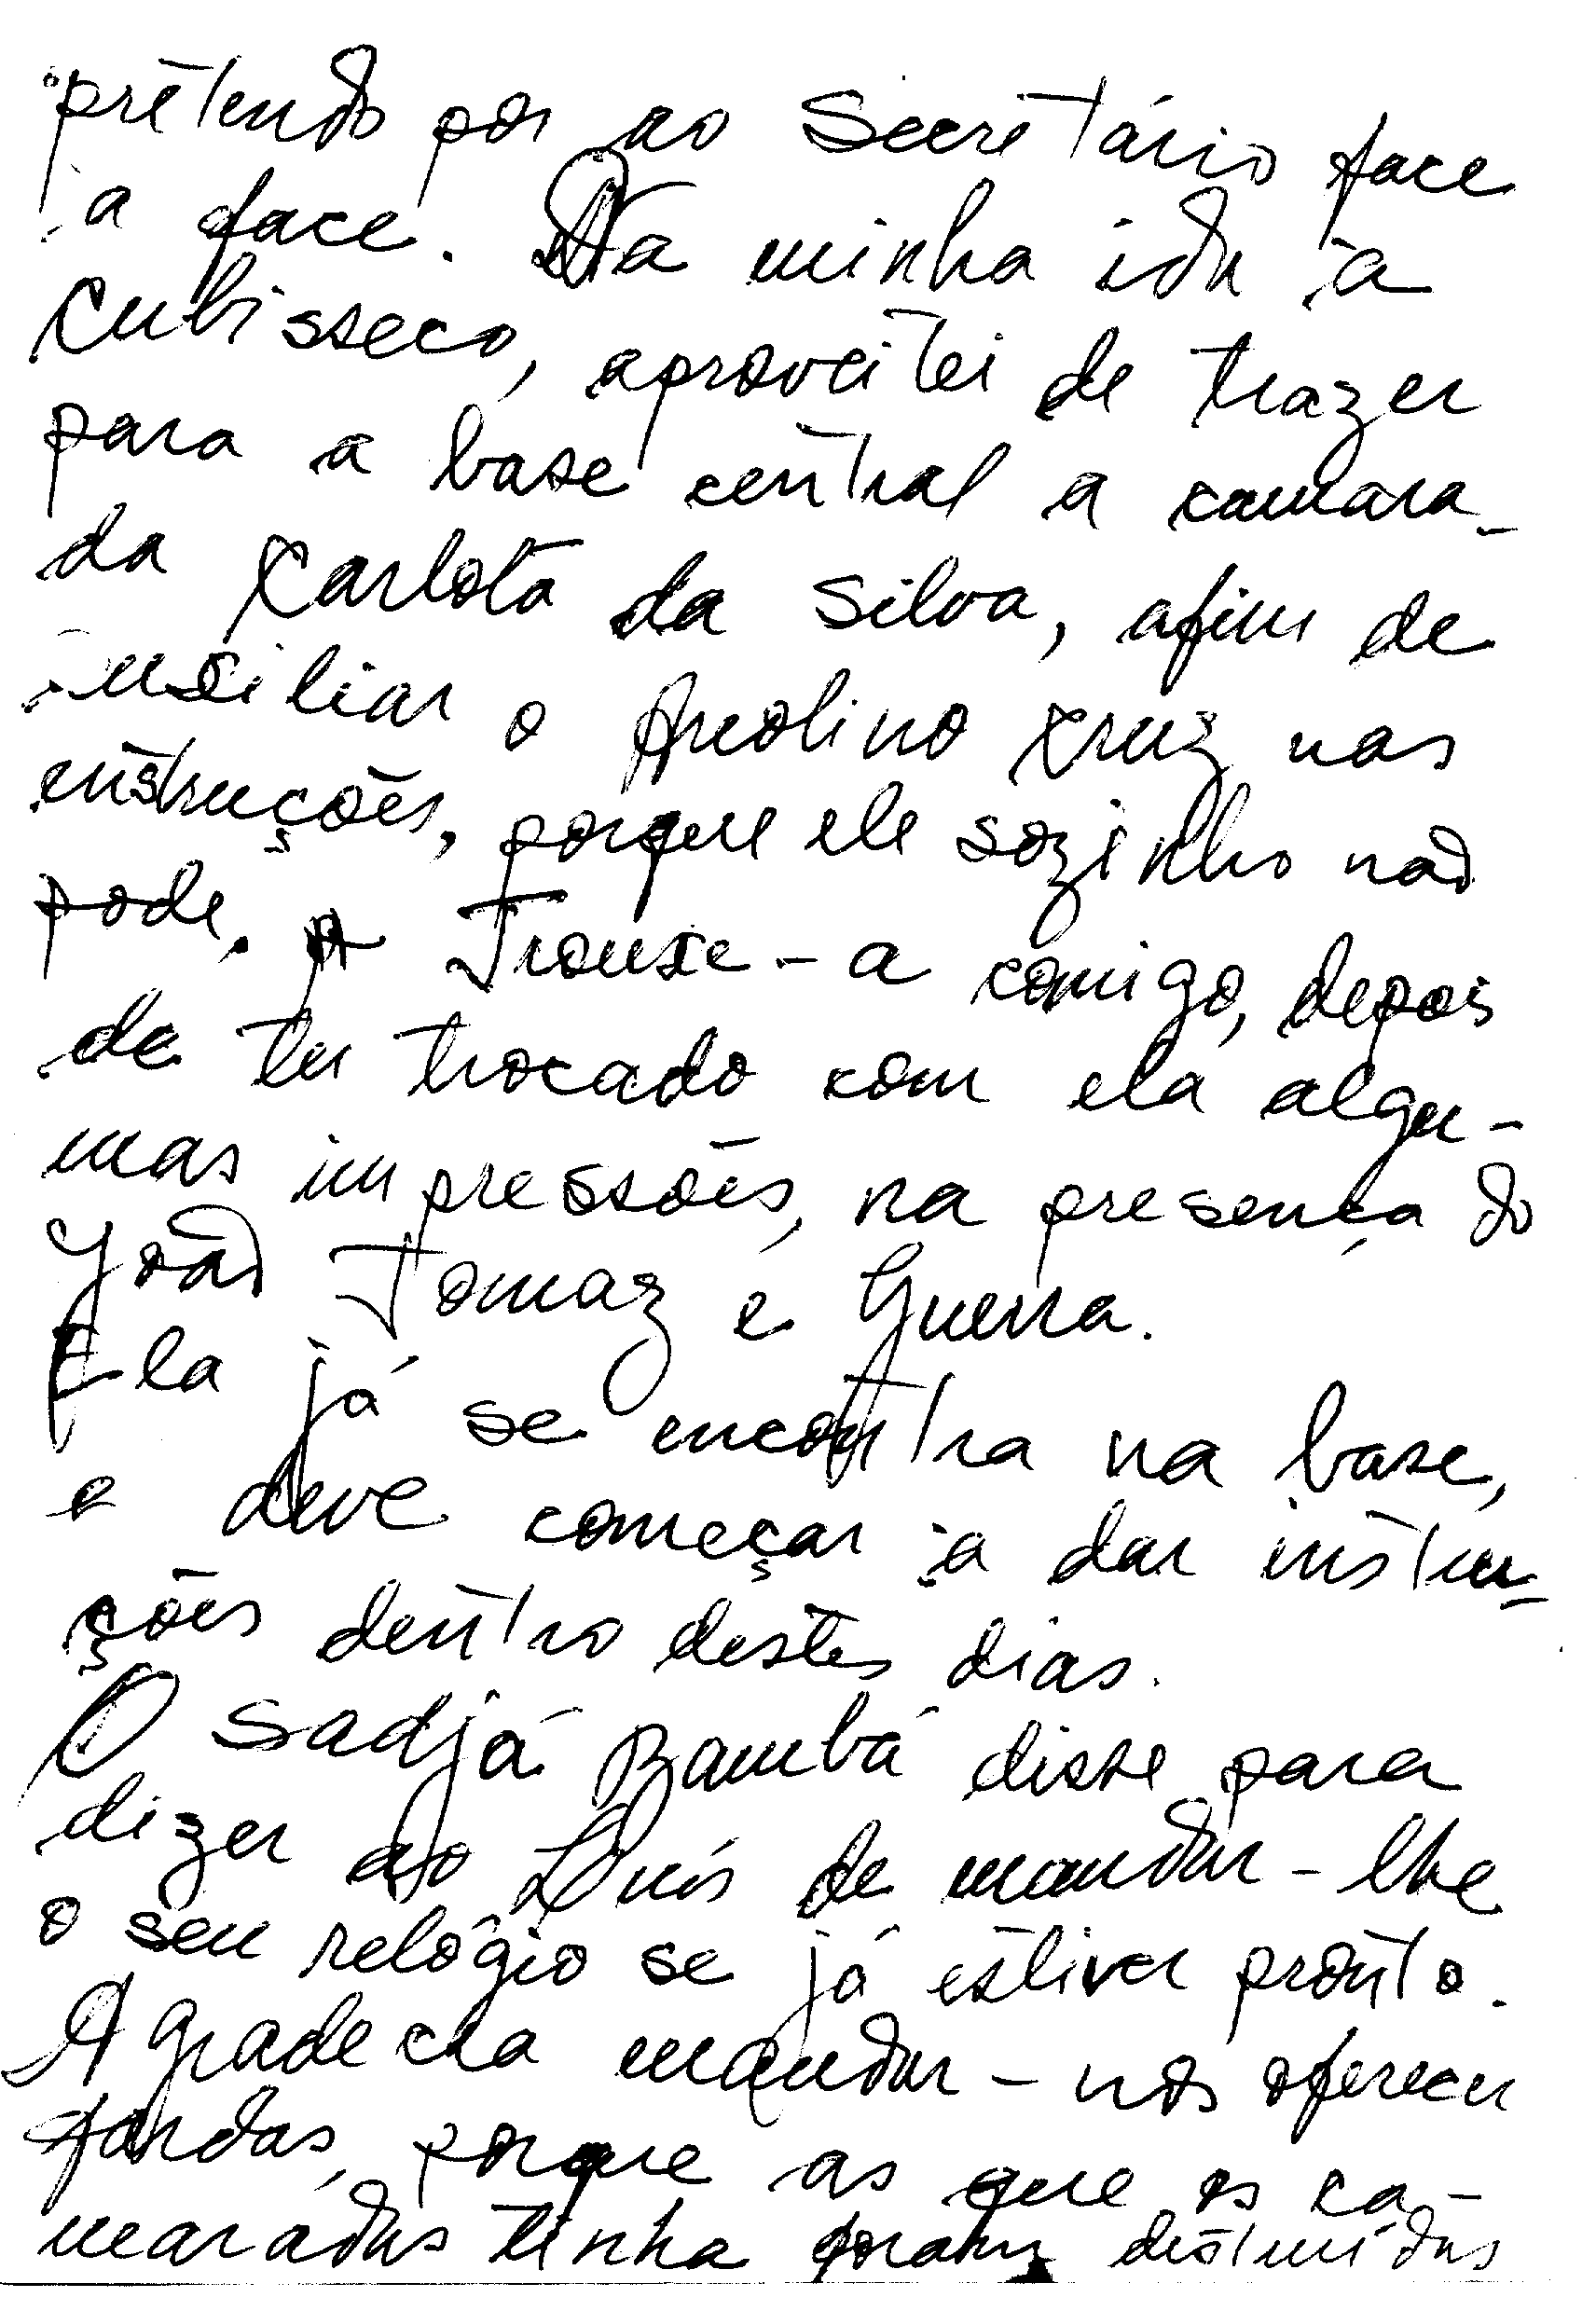 pretendo pôr ao Secretário face
a face. Na minha ida à
Cubisseco, aproveitei de trazer
para a base central a camara-
da Carlota da Silva, afim de
auxiliar o Areolino Cruz nas
instruções, porque ele sozinho não
pode. Trouxe-a comigo, depois
de ter trocado com ela algu-
mas impressões, na presença do
João Tomaz e Guerra.
Ela já se encontra na base,
e deve começar a dar instru-
ções dentro destes dias.
O Sadjá Bambá disse para
dizer ao Luís de mandar-lhe
o seu relógio se já estiver pronto.
Agradecia mandar-nos oferecer
fardas, porque as que os ca-
maradas tinha foram destruídas